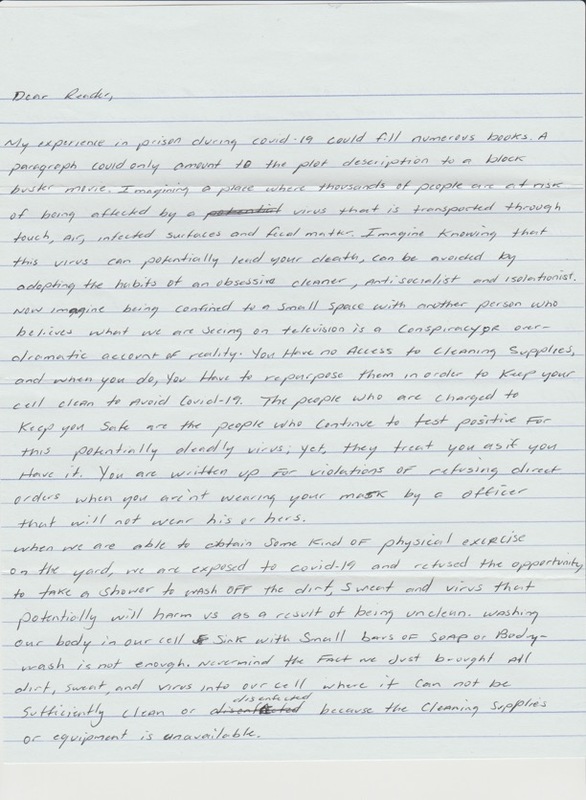 Dear Reader,
My experience in prison during covid-19 could fill numerous books. A
paragraph could only amount to the plot description to a block
buster movie. Imagining a place where thousands of people are at risk
of being affected by a potential virus that is transported through
touch, air, infected surfaces and fecal matter. Imagine knowing that
this virus can potentially lead your death, can be avoided by
adopting the habits of an obsessive cleaner, antisocialist and isolationist.
Now imagine being confined to a small space with another person who
believes what we are seeing on television is a conspiracy or over-
dramatic account of reality. You Have no Access to cleaning supplies,
and when you do, you Have to repurpose them in order to keep your
cell clean to Avoid Covid-19. The people who are charged to
keep you safe are the people who continue to test positive for
this potentially deadly virus; yet, they treat you as if you
Have it. You are written up for violations of refusing direct
orders when you aren't wearing your mask by a officer
that will not wear his or hers.
when we are able to obtain some kind of physical exercise
on the yard, we are exposed to covid-19 and refused the opportunity
to take a shower to wash off the dirt, sweat and virus that
potentially will harm us as a result of being unclean. Washing
our body in our cell sink with small bars of soap or Body-
wash is not enough. Nevermind the fact we just brought all
dirt, sweat, and virus into our cell where it can not be
sufficiently clean or disenfected because the cleaning supplies
or equipment is unavailable.